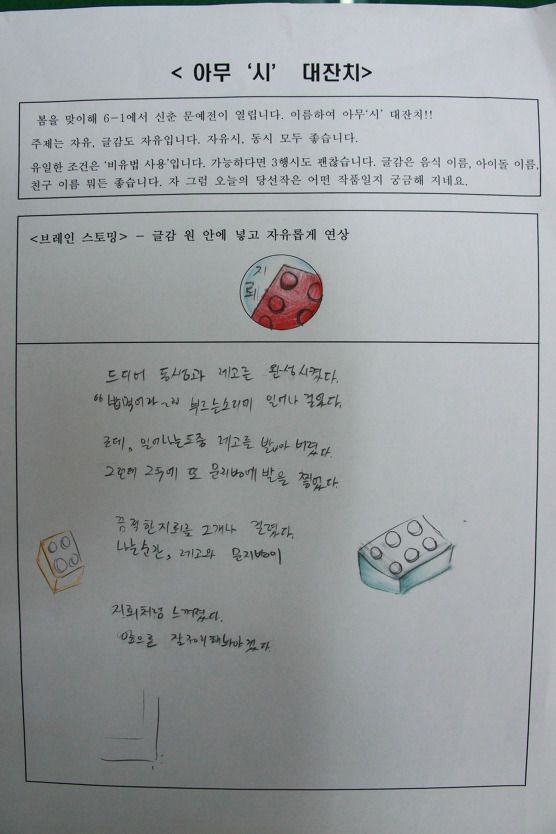 < 아무 ‘시’ 대잔치>
봄을 맞이해 6-1에서 신춘 문예전이 열립니다. 이름하여 아무‘시’ 대잔치!!
주제는 자유, 글감도 자유입니다. 자유시, 동시 모두 좋습니다.
유일한 조건은 ‘비유법 사용’입니다. 가능하다면 3행시도 괜찮습니다. 글감은 음식 이름, 아이돌 이름,
친구 이름 뭐든 좋습니다. 자 그럼 오늘의 당선작은 어떤 작품일지 궁금해 지네요.
<브레인 스토밍> - 글감 원 안에 넣고 자유롭게 연상
지
뢰
드디어 동생과 레고를 완성시켰다.
부르는소리에 일어나
근데, 일어나는도중 레고를 밟아 버렸다.
또 문지방에 발을 찧었다.
끔찍한지뢰를 2개나 걸렸다.
나는순간, 레고와 문지방이
지뢰처럼 느껴졌다.
앞으로